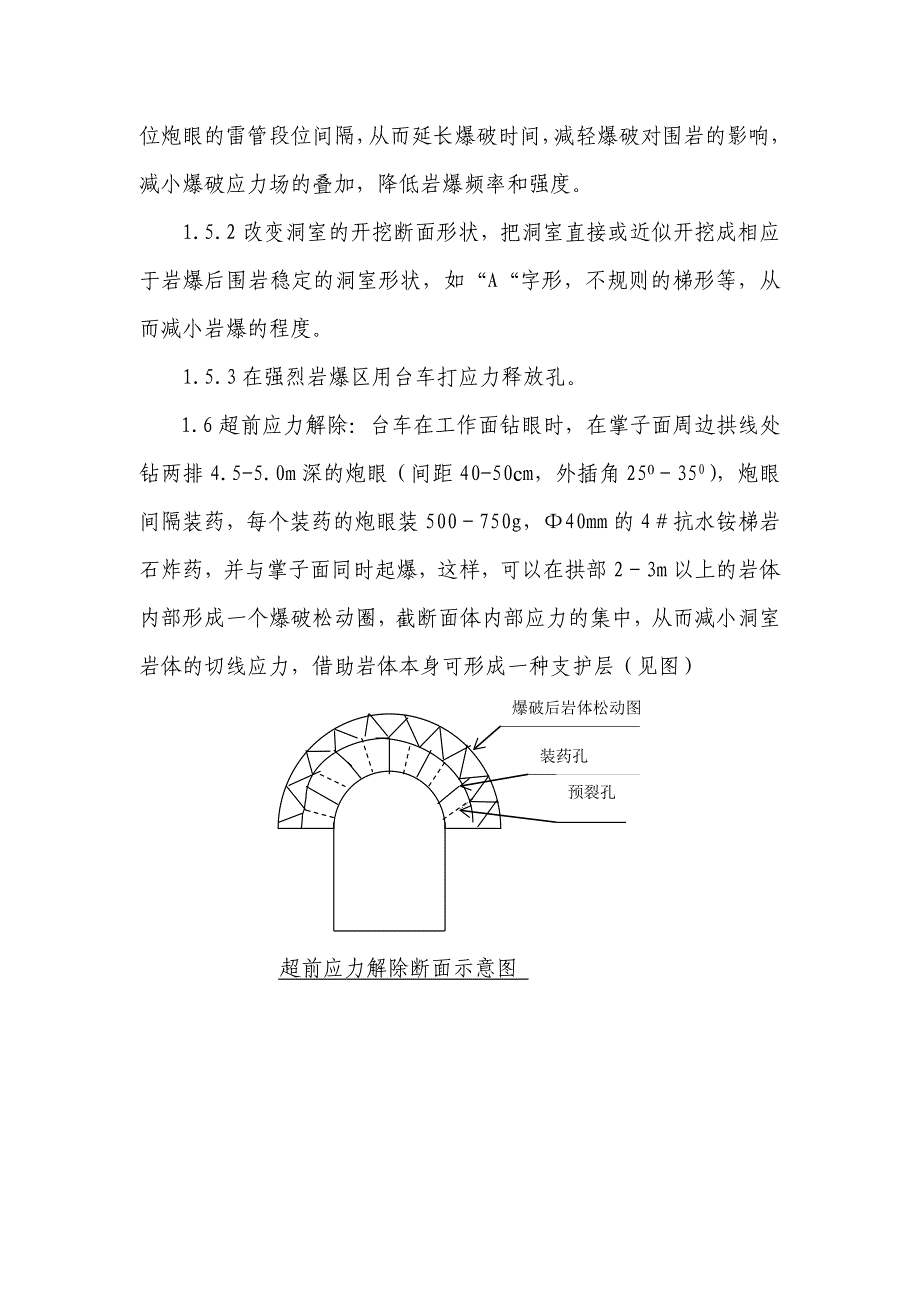 位炮眼的雷管段位间隔,从而延长爆破时间,减轻爆破对围岩的影响,
减小爆破应力场的叠加，降低岩爆频率和强度。
1.5.2 改变洞室的开挖断面形状，把洞室直接或近似开挖成相应
于岩爆后围岩稳定的洞室形状，如“A“字形，不规则的梯形等，从
而减小岩爆的程度。
1.5.3 在强烈岩爆区用台车打应力释放孔。
1.6 超前应力解除：台车在工作面钻眼时，在掌子面周边拱线处
钻两排 4.5-5.0m 深的炮眼（间距 40-50cm，外插角 25⁰－35⁰），炮眼
间隔装药，每个装药的炮眼装 500－750g，Φ40mm 的 4＃抗水铵梯岩
石炸药，并与掌子面同时起爆，这样，可以在拱部 2－3m 以上的岩体
内部形成一个爆破松动圈，截断面体内部应力的集中，从而减小洞室
岩体的切线应力，借助岩体本身可形成一种支护层（见图）
爆破后岩体松动图
装药孔
预裂孔
超前应力解除断面示意图